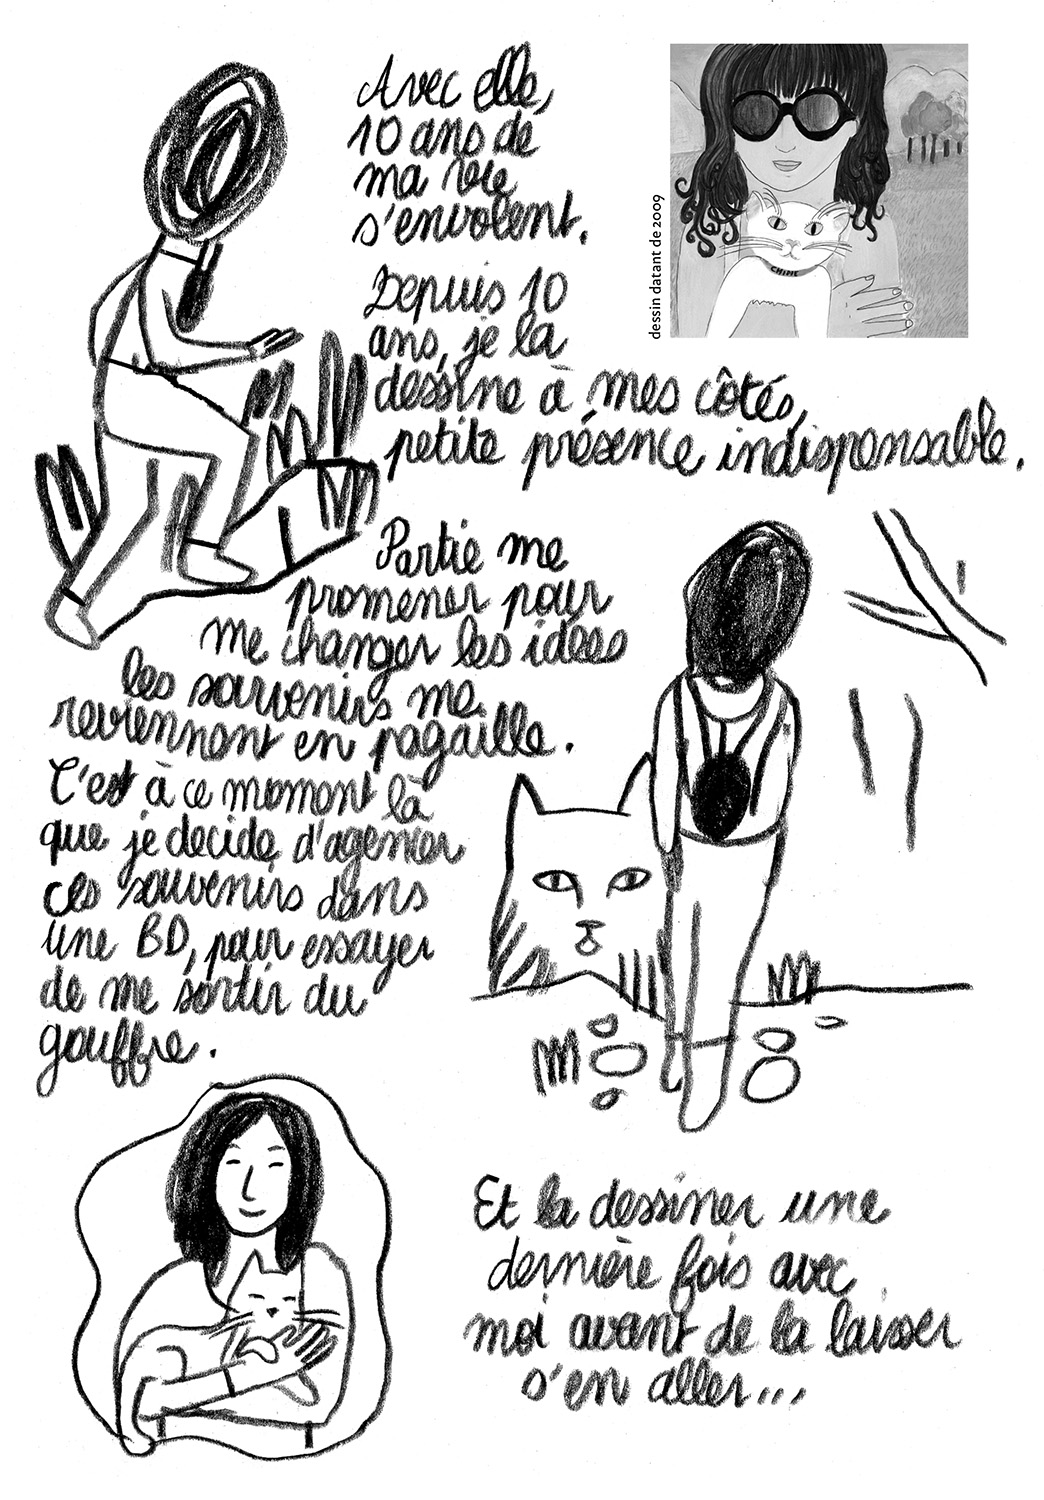 Avec elle,
10 ans de
ma vie
s'envolent.
dessin datant de 2009
CHIPIE
Depuis 10
ans, je la
dessine à mes côtés,
petite présence indispensable.
Partie me
promener pour
me changer les idées
les souvenirs me
reviennent en pagaille.
C'est à ce moment là
que je decide d'agencer
ces souvenirs dans
une BD, pour essayer
de me sortir du
gouffre.
Et la dessiner une
dernière fois avec
moi avant de la laisser
s'en aller...